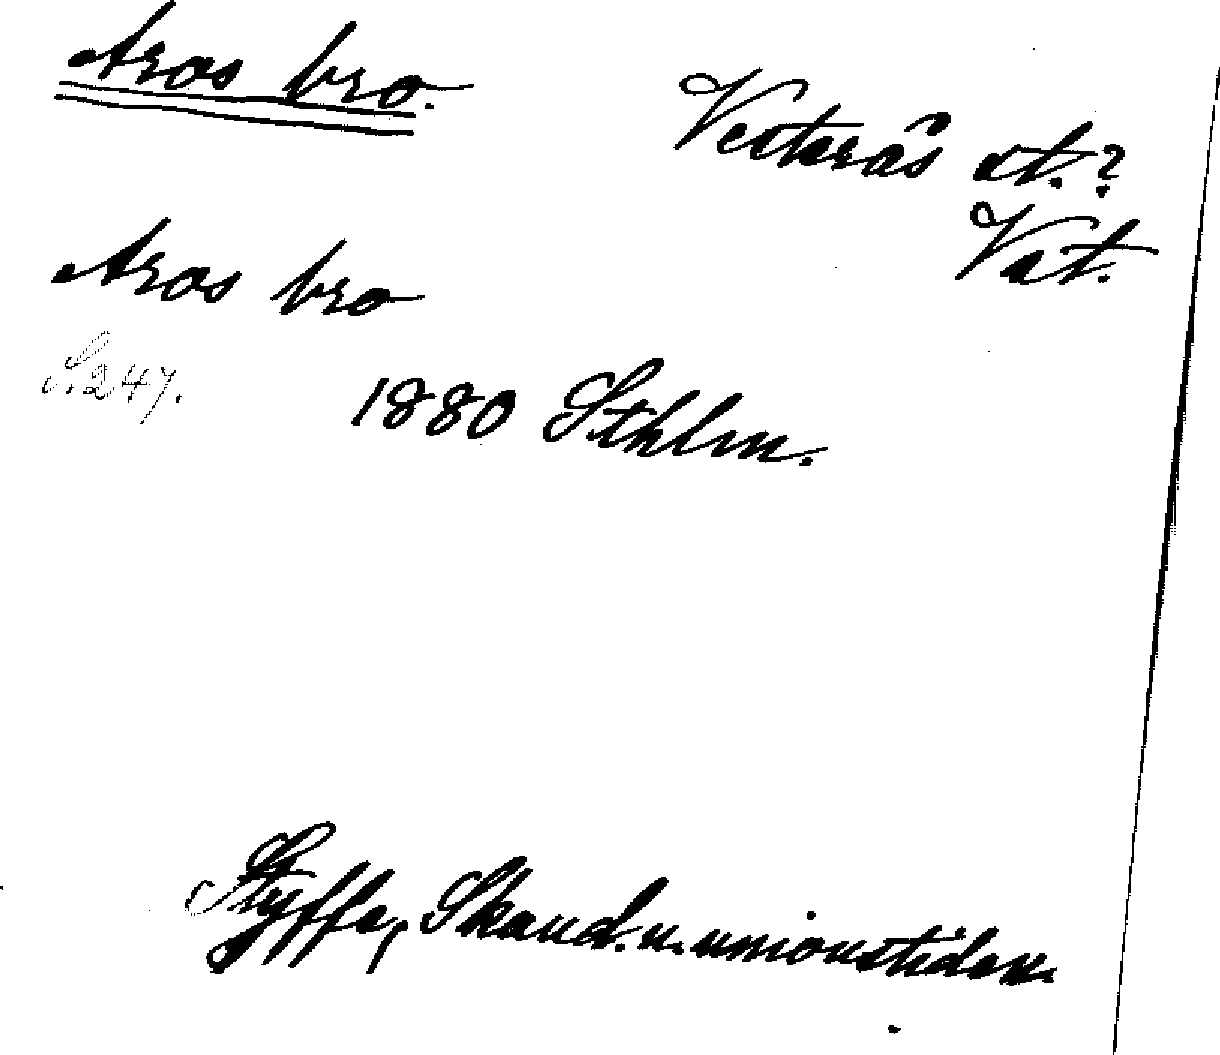 Aros bro.
Vesterås st.?
Vst.
Aros bro
S. 247.
1880 Sthlm.
Styffe, Skand. u. unionstiden.